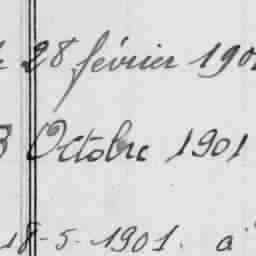 28 février 190
Octobre 1901
18-5-1901. a